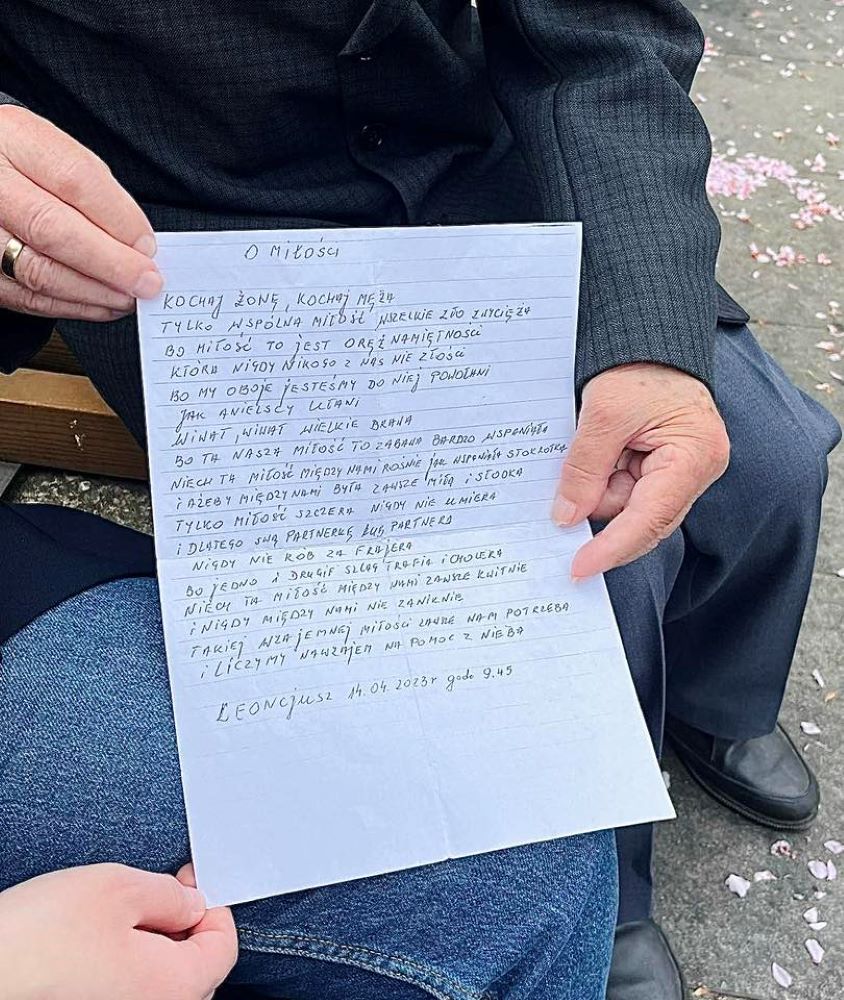 O MIŁOŚCI
KOCHAJ ŻONĘ, KOCHAJ MĘŻA
TYLKO WSPÓLNA MIŁOŚĆ WSZELKIE ZŁO ZWYCIĘŻA
BO MIŁOŚĆ TO JEST ORĘŻ NAMIĘTNOŚCI
KTÓRA NIGDY NIKOGO Z NAS NIE ZŁOŚCI
BO MY OBOJE JESTEŚMY DO NIEJ POWOŁANI
JAK ANIELSCY UŁANI
WIWAT, WIWAT WIELKIE BRAWA
BO TA NASZA MIŁOŚĆ TO ZABAWA BARDZO WSPANIAŁA
NIECH TA MIŁOŚĆ MIĘDZY NAMI ROŚNIE JAK WSPANIAŁA STOKROTKA
I AŻEBY MIĘDZY NAMI BYŁA ZAWSZE MIŁA I SŁODKA
TYLKO MIŁOŚĆ SZCZERA NIGDY NIE UMIERA
I DLATEGO SWĄ PARTNERKĘ PARTNERA
NIGDY NIE RÓB ZA FRAJERA
BO JEDNO I DRUGIE SZLAG TRAFIA I CHOLERA
NIECH TA MIŁOŚĆ MIĘDZY NAMI ZAWSZE KWITNIE
I NIGDY MIĘDZY NAMI NIE ZANIKNIE
TAKIEJ WZAJEMNEJ MIŁOŚCI NAM POTRZEBA
I LICZYMY NAWZAJEM NA POMOC Z NIEBA
LEONCJUSZ 14.04.2023r godz 9.45